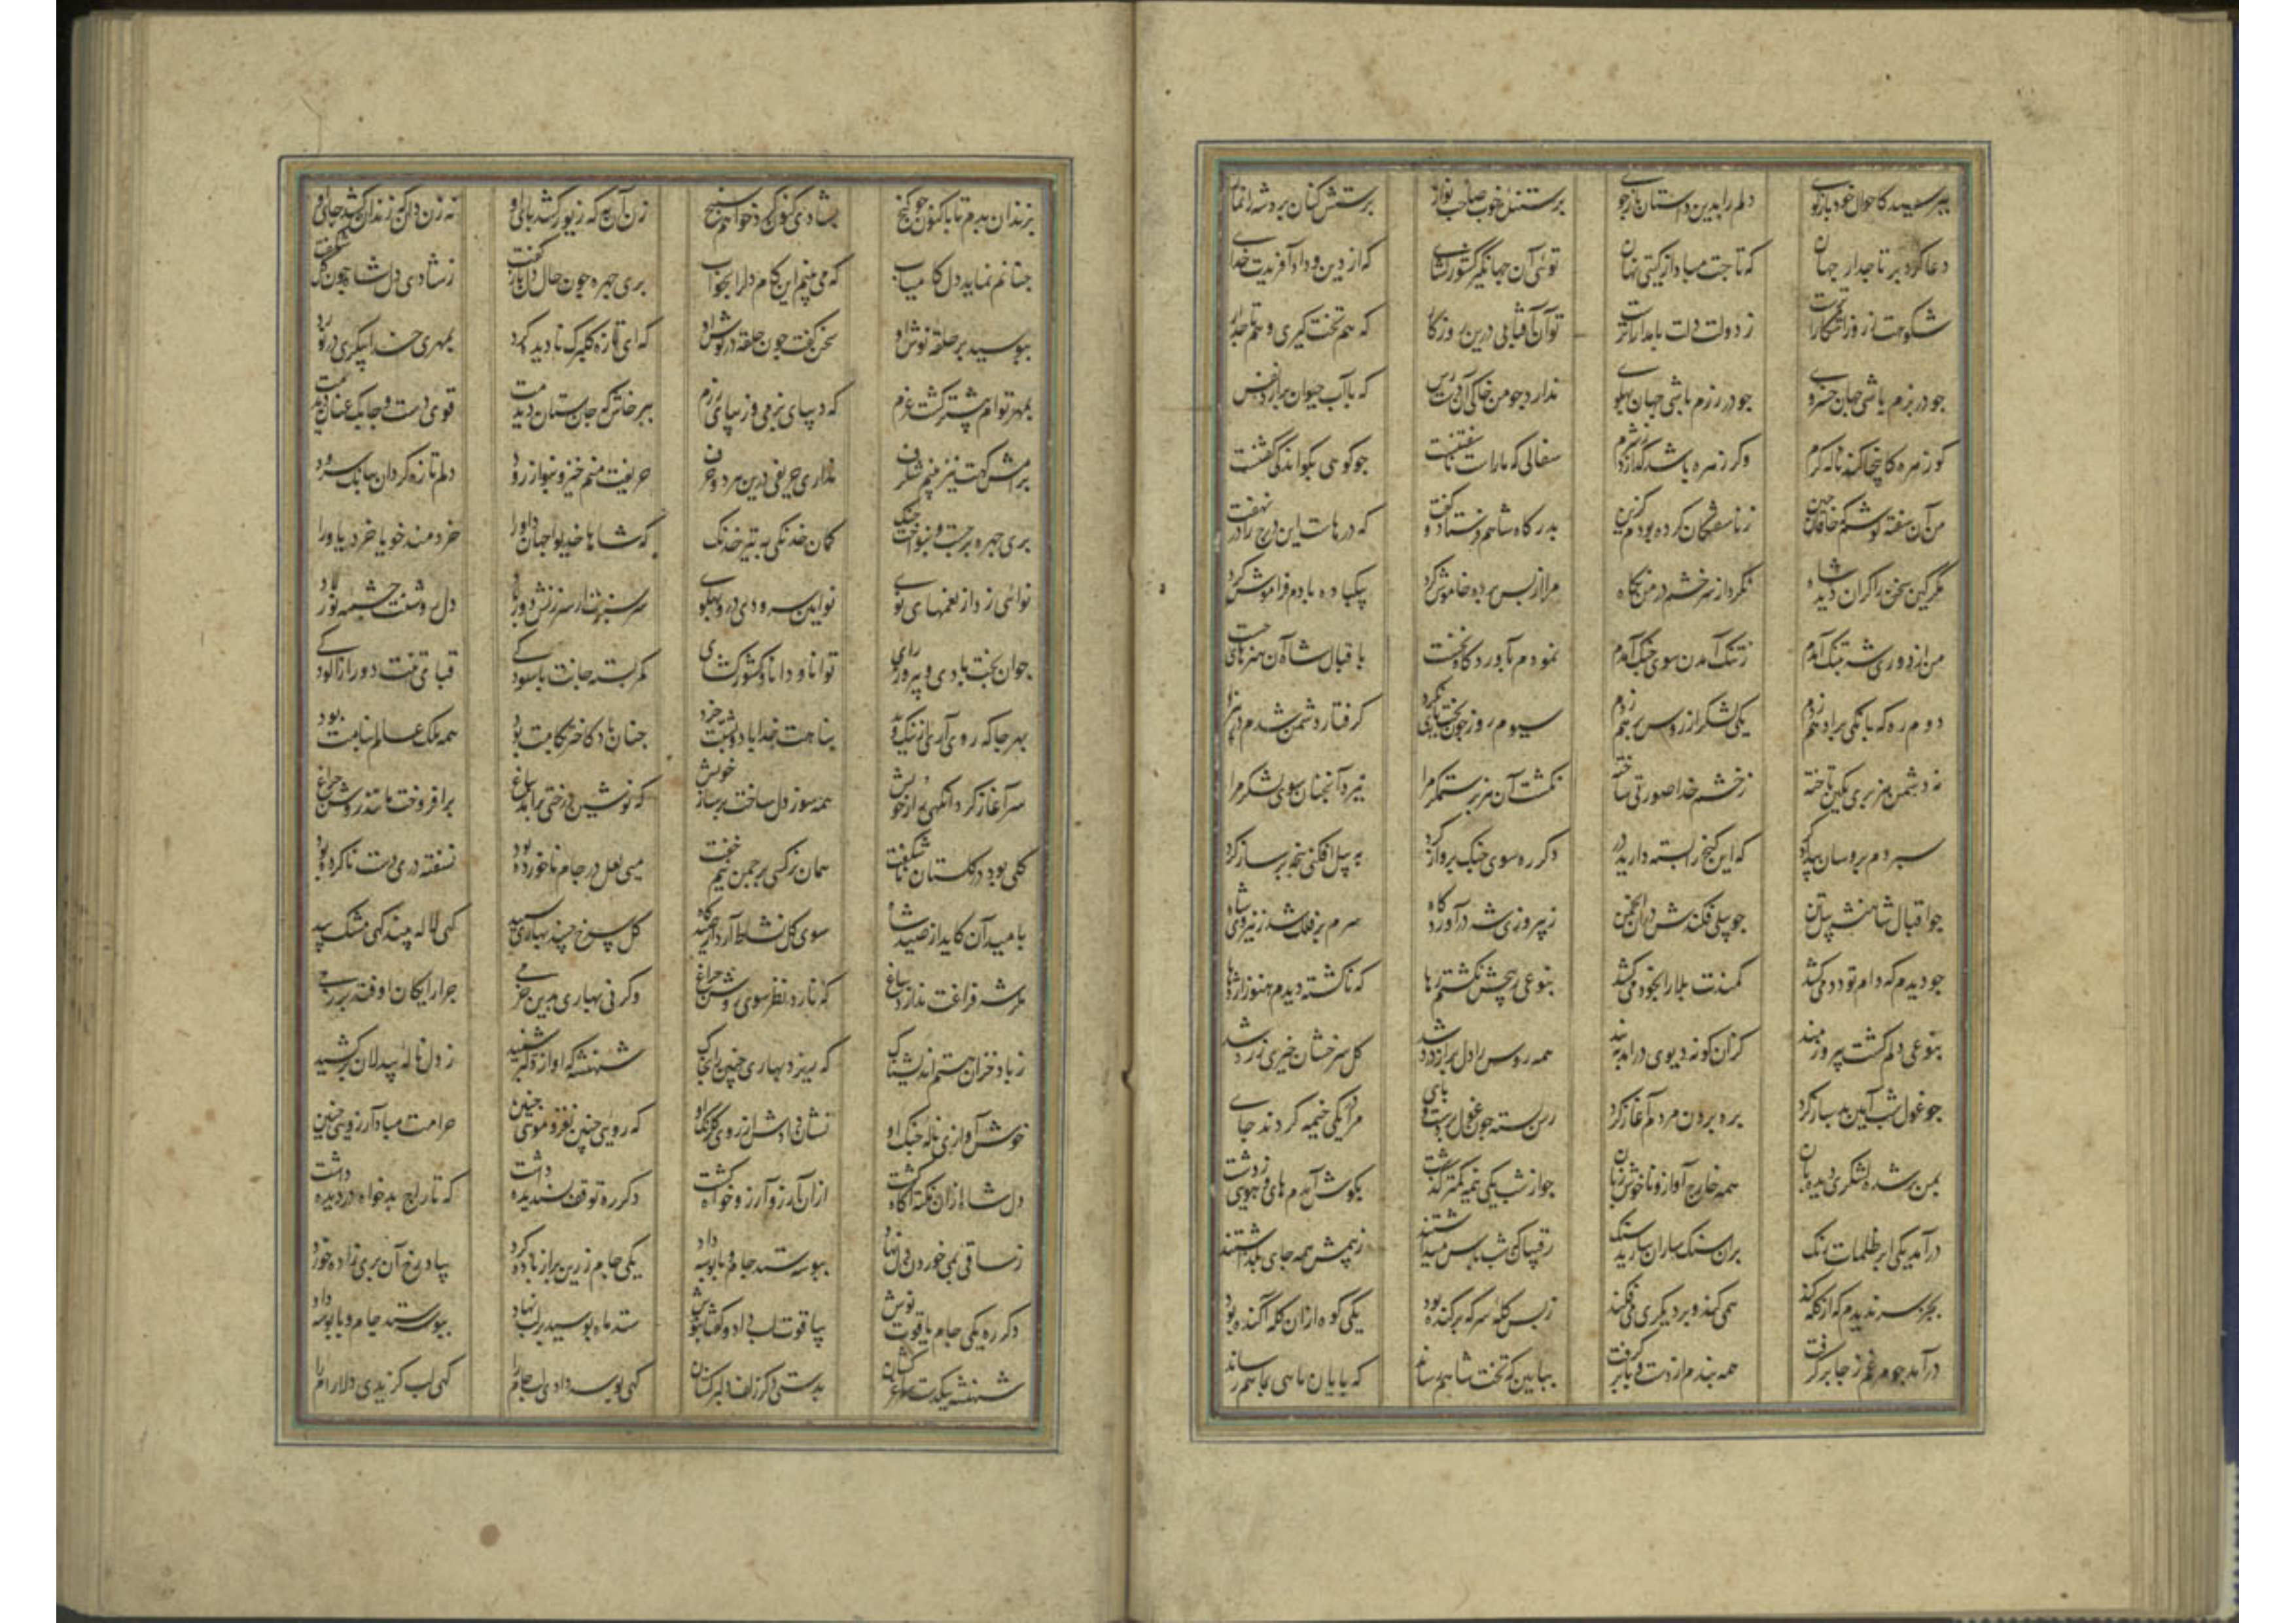 بپرسید کاحوال خود بازگوی دلم را بدین داستان بازجوی پرستش‌کنان خوب صاحب نواز پرستش کنان برد شه را نماز
دعا کرد بر تاجدار جهان که تاجت مباد از کیتی نهان توئی آن جهانگیر کشورکشای که از دین و داد آفریدت خدای
شکوهت ز روز آشکاراترست ز دولت دلت با مداراترست تو آن آفتابی درین روزکار که هم تخت کیری و هم تاجدار
جو در بزم باشی جهان خسروی جو در رزم باشی جهان پهلوی ندارد جو من خاکی آن دسترس که با آب حیوان برارد نفس
کوزهره کاینجا کند ناله کرم وکر زهره باشد کدازد ز شرم سفالی که ما را بناسفت جو کوهی بکو
من آن سفته کوشم که خاقان جین ز ناسفتکان کرده بودم کزین بدرکاه شاهم فرستاد و کفت که درهاست این درج را در نهفت
مکر کین سخن را کران دید شاه نکرد از سر خشم در من نکاه مرا از پس پرده خاموش کرد بیکباره یادم فراموش کرد
من از دوری شه بتنک آمدم ز تنک آمدن سوی جنک آمدم نمودم بآورد کاه نخست باقبال شاه آن هنرهای جست
دوم ره که بانکی بر ادهم زدم یکی لشکر از روس برهم زدم سیوم روز جون بخت یاری نکرد کرفتار دشمن شدم در نبرد
نه دشمن هزبری بکین تاخته ز خشم خدا صورتی ساخته نکشت آن هزبر ستمکر مرا سپرد آنچنان سوی لشکر مرا
سپردم بروسان بیدادکر که این کنج را بسته دارید در دکر ره سوی جنک پرواز کرد به پیل افکنی پنجه بر ساز کرد
جو اقبال شاهنشه پیلتن جو پیلی فکندش در آن انجمن ز پیروزی شه در آوردکاه سرم بر فلک شد ز نیروی شاه
جو دیدم که دام تو دد می‌کشد کمندت بلا را بخود می‌کشد بنوعی ز بخشش نکشتم رها که ناکشته دیدم هنوز اژدها
بنوعی دلم کشت پیروزمند کزان کونه دیوی درآمد به بند همه روس را دل پر از درد شد کل سرخشان خیری زرد شد
جو غول شب آیین بد ساز کرد به بردن مردم آغاز کرد رسن بسته جون غول بر دست و پای مرا در یکی خیمه کردند جای
بمن بر شده لشکری دیده‌بان همه خارج آواز و ناخوش زبان جو از شب یکی نیمه کمتر کذشت بکوش آمدم های و هویی ز دشت
درآمد یکی ابر ظلمات رنک بران سنک ساران ببارید سنک رقیبان که شب پاس میداشتند ز بیمش همه جای بکذاشتند
بجز سر ندیدم که از کله کند همی کند و بر دیکری می‌فکند ز بس کله سر که برکنده بود یکی کوه ازان کله آکنده بود
درآمد جو مرغم ز جا برکرفت همه بندم از دست و پا برکرفت بپایین که تخت شاهم رساند که پایان ماهی بماهم رساند
بزندان بدم تا باکنون جو کنج بشادی کنون کرد خواهم سپنج زن آن به که زیور کشد پای او نه زن دان که زندان کشد جای او
جنانم نماید دل کامیاب که می‌بینم این کام دل را بخواب پری جهره جون حال دل باز کفت ز شادی دل شاه جون کل شکفت
ببوسید بر حلقه نوش او سخن کفت جون حلقه در کوش او که ای تازه کلبرک نادیده کرد بمهر خدا پیکری در نورد
بمهر تو ام پیشتر کشت عزم که دیبای بزمی و زیبای رزم بپرخاش که جان‌ستان دیدمت قوی دست و جابک عنان دیدمت
برامش کهت نیز بینم شکرف نداری حریفی درین هر دو حرف حریفت منم خیز و بنواز رود دلم تازه کردان ببانک سرود
پری جهره برجست و بنواخت جنک کمان خدنکی به تیر خدنک که شاها خدیوا جهان داورا خردمند خویا خرد یاورا
نوائی زد از نغمهای نوی نو آیین سرودی در و پهلوی سر سبزت از سرزنش دور باد دل روشنت جشمه نور باد
جوان بخت بادی و پیروز رای توانا و دانا و کشورکشای کمر بسته جانت بآسودکی قبای تنت دور از آلودکی
بهر جا که روی آری از نیک و بد پناهت خدا باد و پشتت خرد جنان باد کاختر بکامت بود همه ملک عالم بنامت بود
سرآغاز کرد آنکهی راز خویش همه سوز دل ساخت بر ساز خویش که نوشین درختی برآمد بباغ برافروخت مانند روشن جراغ
کلی بود در کلستان ناشکفت همان نرکسی بر جمن نیم خفت میی لعل در جام ناخورده بود نسفته دری دست ناکرده بود
بامید آن کاید از صید شاه سوی کل نشاط آرد از صیدکاه کل سرخ جیند بهاری سپید کهی لاله جیند کهی مشک بید
مکر شه فراغت ندارد بباغ که نارد نظر سوی روشن جراغ وکرنی بهاری بدین خرمی جرا رایکان اوفتد بر زمی
ز باد خزان هستم اندیشناک که ریزد بهاری جنین را بخاک شهنشه که آواز دلبر شنید ز دل ناله بیدلان برکشید
خوش آوازی ناله جنک او نشان داد از روی کلرنک او که رویی جنین نغز و مویی جنین حرامت مباد آرزویی جنین
دل شاه ازان نکته آکاه کشت ازان آرزو آرزوخواه کشت دکر ره توقف پسندیده داشت که تاراج بدخواه در دیده داشت
ز ساقی بمی خوردن دل نهاد ببوسه ستد جام و با بوسه داد یکی جام زرین پر از باده کرد بیاد رخ آن پری‌زاده خورد
دکر ره یکی جام یاقوت نوش بیاقوت لب داد و کفتا بنوش ستد ماه و بوسید و بر لب نهاد ببوسه ستد جام و با بوسه داد
شهنشه بیکدست ساغر کشان بدستی دکر زلف دلبر کشان کهی بوسه دادی لب جام را کهی لب کزیدی دلارام را